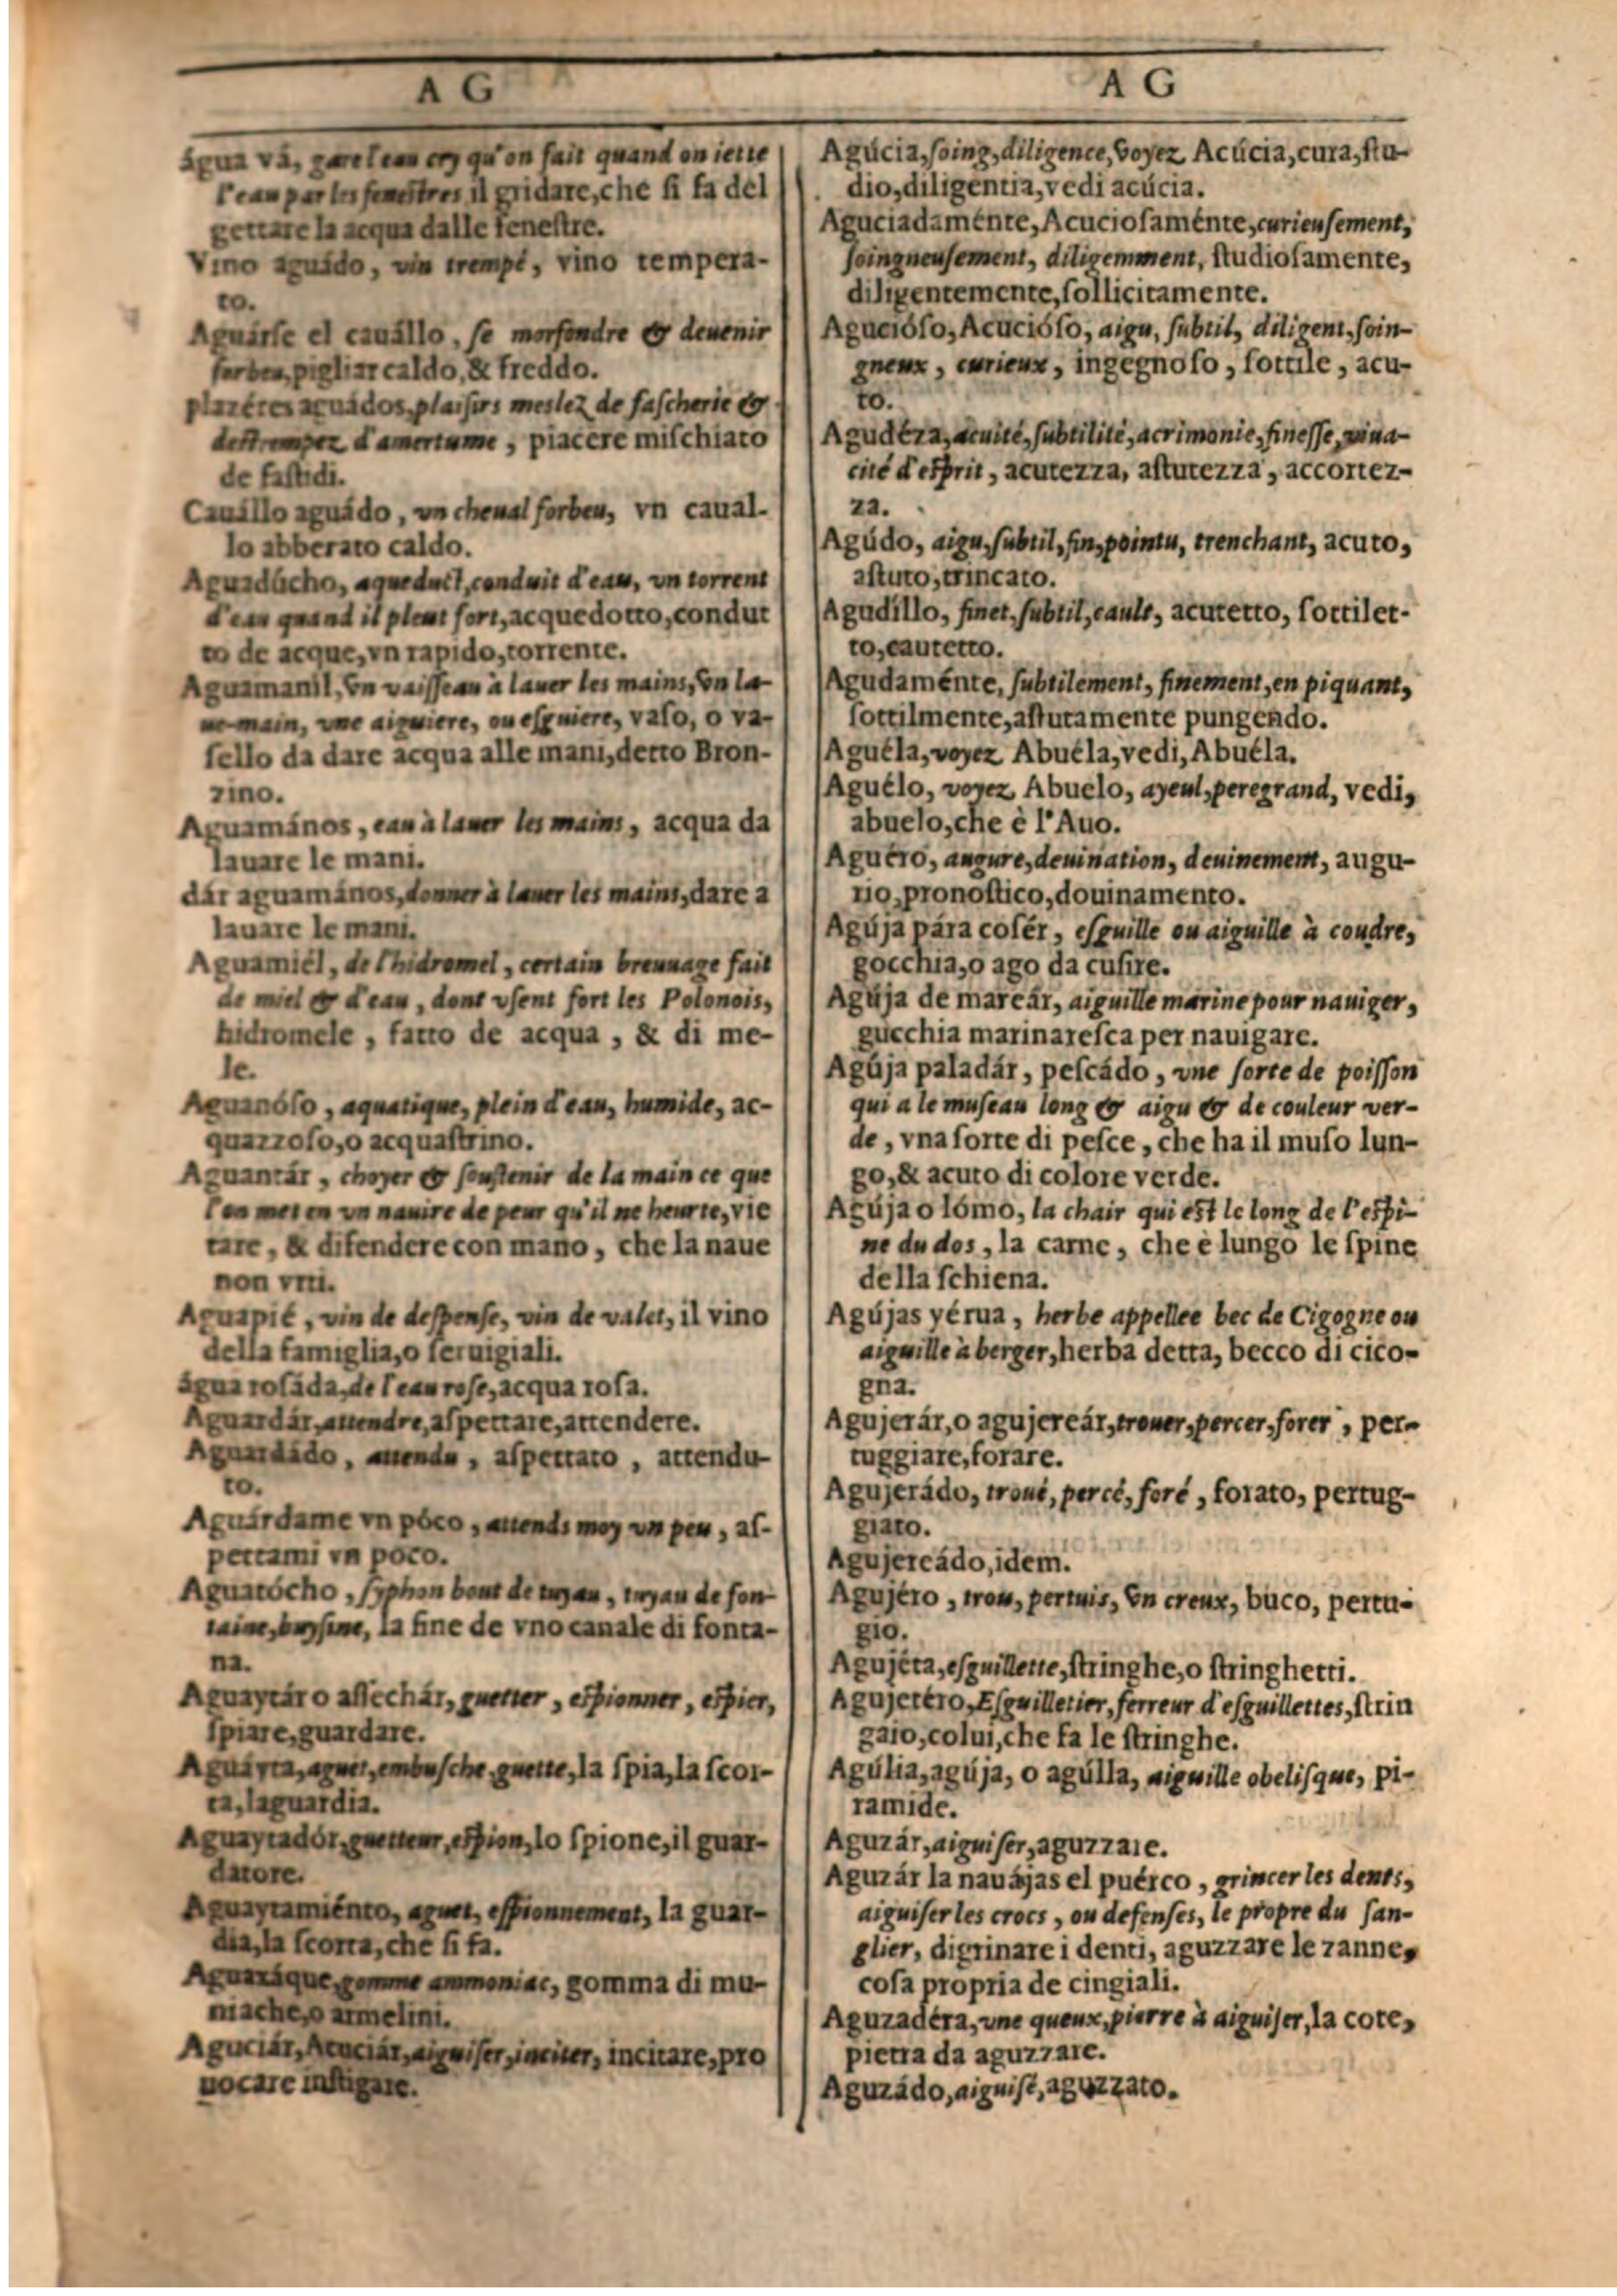 A G
água vá, gare l'eau cry qu'on fait quand on iette
l'eau par les fenestres il gridare, che ſi fa del
gettare la acqua dalle feneſtre.
Vino aguádo, vin trempé, vino tempera-
to.
Aguárſe el cauállo, ſe morfondre & deuenir
forbeu, pigliar caldo, & freddo.
plazéres aguádos, plaiſirs meslez de faſcherie &
destrempez d'amertume, piacere miſchiato
de faſtidi.
Cauállo aguádo, vn cheual forbeu, vn caual-
lo abberato caldo.
Aguadúcho, aqueduct, conduit d'eau, vn torrent
d'eau quand il pleut fort, acquedotto, condut
to de acque, vn rapido, torrente.
Aguamaníl, vn vaiſſeau à lauer les mains, vn la-
ue-main, vne aiguiere, ou eſguiere, vaſo, o va-
ſello da dare acqua alle mani, detto Bron-
zino.
Aguamános, eau à lauer les mains, acqua da
lauare le mani.
dár aguamános, donner à lauer les mains, dare a
lauare le mani.
Aguamiél, de l'hidromel, certain breuuage fait
de miel & d'eau, dont vſent fort les Polonois,
hidromele, fatto de acqua, & di me-
le.
Aguanóſo, aquatique, plein d'eau, humide, ac-
quazzoſo, o acquaſtrino.
Aguantár, choyer & ſouſtenir de la main ce que
l'on met en vn nauire de peur qu'il ne heurte, vie
tare, & difendere con mano, che la naue
non vrti.
Aguapié, vin de deſpenſe, vin de valet, il vino
della famiglia, o ſeruigiali.
água roſáda, de l'eau roſe, acqua roſa.
Aguardár, attendre, aſpettare, attendere.
Aguardádo, attendu, aſpettato, attendu-
to.
Aguárdame vn póco, attends moy vn peu, aſ-
pettami vn poco.
Aguatócho, ſyphon bout de tuyau, tuyau de fon-
taine, buyſine, la fine de vno canale di fonta-
na.
Aguaytár o aſſechár, guetter, eſpionner, eſpier,
ſpiare, guardare.
Aguáyta, aguet, embuſche, guette, la ſpia, la ſcor-
ta, la guardia.
Aguaytadór, guetteur, eſpion, lo ſpione, il guar-
datore.
Aguaytamiénto, aguet, eſpionnement, la guar-
dia, la ſcorta, che ſi fa.
Aguaxáque, gomme ammoniac, gomma di mu-
niache, o armelini.
Aguciár, Acuciár, aiguiſer, inciter, incitare, pro
uocare inſtigare.
A G
Agúcia, ſoing, diligence, voyez Acúcia, cura, ſtu-
dio, diligentia, vedi acúcia.
Aguciadaménte, Acucioſaménte, curieuſement,
ſoingneuſement, diligemment, ſtudioſamente,
diligentemente, ſollicitamente.
Agucióſo, Acucióſo, aigu, ſubtil, diligent, ſoin-
gneux, curieux, ingegnoſo, ſottile, acu-
to.
Agudéza, acuité, ſubtilité, acrimonie, fineſſe, viua-
cité d'eſprit, acutezza, aſtutezza, accortez-
za.
Agúdo, aigu, ſubtil, fin, pointu, trenchant, acuto,
aſtuto, trincato.
Agudíllo, finet, ſubtil, cault, acutetto, ſottilet-
to, cautetto.
Agudaménte, ſubtilement, finement, en piquant,
ſottilmente, aſtutamente pungendo.
Aguéla, voyez Abuéla, vedi, Abuéla.
Aguélo, voyez Abuelo, ayeul, peregrand, vedi,
abuelo, che è l'Auo.
Aguéro, augure, deuination, deuinement, augu-
rio, pronoſtico, douinamento.
Agúja pára coſér, eſguille ou aiguille à coudre,
gocchia, o ago da cuſire.
Agúja de mareár, aiguille marine pour nauiger,
gucchia marinareſca per nauigare.
Agúja paladár, peſcádo, vne ſorte de poiſſon
qui a le muſeau long & aigu & de couleur ver-
de, vna ſorte di peſce, che ha il muſo lun-
go, & acuto di colore verde.
Agúja o lómo, la chair qui est le long de l'eſpi-
ne du dos, la carne, che è lungo le ſpine
della ſchiena.
Agújas yérua, herbe appellee bec de Cigogne ou
aiguille à berger, herba detta, becco di cico-
gna.
Agujerár, o agujereár, trouer, percer, forer, per-
tuggiare, forare.
Agujerádo, troué, percé, foré, forato, pertug-
giato.
Agujereádo, idem.
Agujéro, trou, pertuis, vn creux, buco, pertu-
gio.
Agujéta, eſguillette, ſtringhe, o ſtringhetti.
Agujetéro, Eſguilletier, ferreur d'eſguillettes, ſtrin
gaio, colui, che fa le ſtringhe.
Agúlia, agúja, o agúlla, aiguille obeliſque, pi-
ramide.
Aguzár, aiguiſer, aguzzare.
Aguzár la nauájas el puérco, grincer les dents,
aiguiſer les crocs, ou defenſes, le propre du ſan-
glier, digrinare i denti, aguzzare le zanne,
coſa propria de cingiali.
Aguzadéra, vne queux, pierre à aiguiſer, la cote,
pietra da aguzzare.
Aguzádo, aiguiſé, aguzzato.